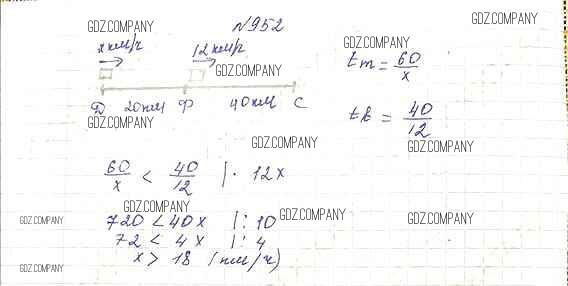 GDZ.COMPANY
N952
GDZ.COMPANY
x км/ч
12 км/ч
GDZ.COMPANY
GDZ.COMPANY
tт = 60/x
Д 20км Ф 40км С
GDZ.COMPANY
tк = 40/12
GDZ.COMPANY
GDZ.COMPANY
60/x < 40/12 |· 12x
GDZ.COMPANY
GDZ.COMPANY
GDZ.COMPANY
GDZ.COMPANY
720 < 40x |: 10
72 < 4x |: 4
x > 18 (км/ч)
GDZ.COMPANY